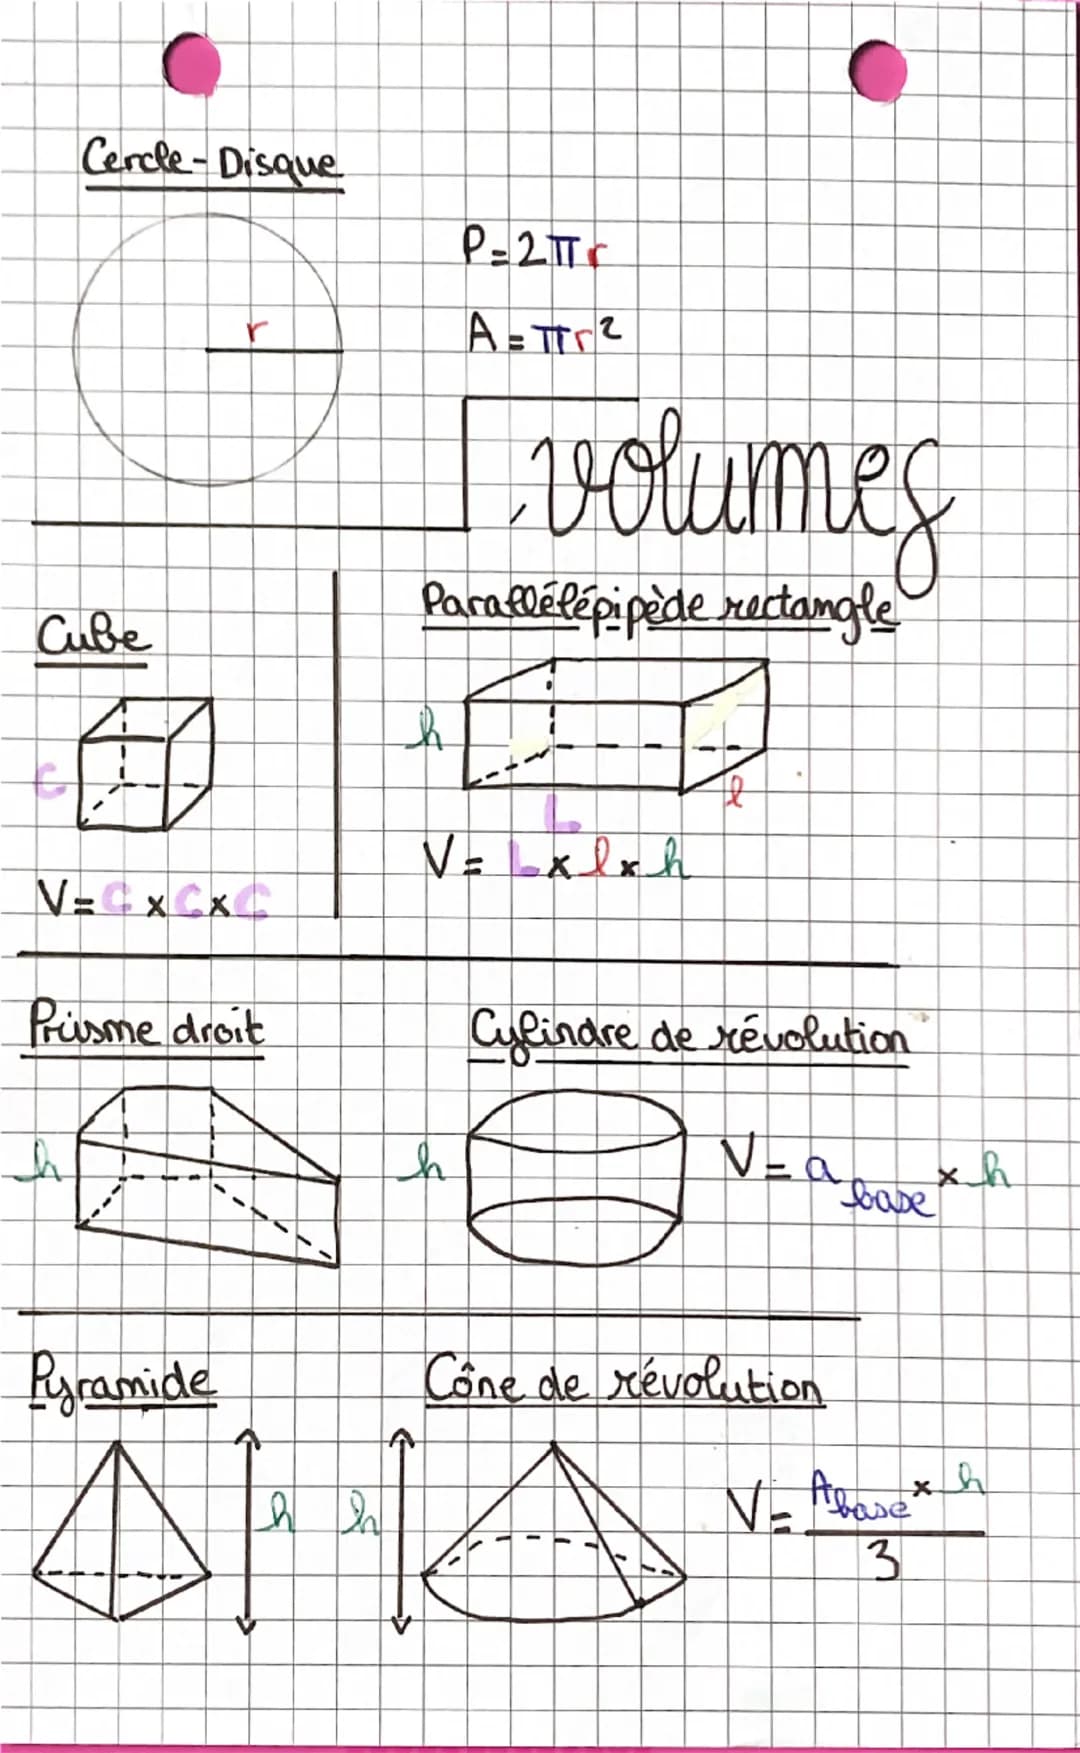 Cercle-Disque
r
P=2πr
A=πr²
volumes
Cube
c
V=c×c×c
Parallélépipède rectangle
h
l
L
V= L×l×h
Prisme droit
h
Cylindre de révolution
h
V=a base × h
Pyramide
h
Cône de révolution
h
V= Abase × h
3